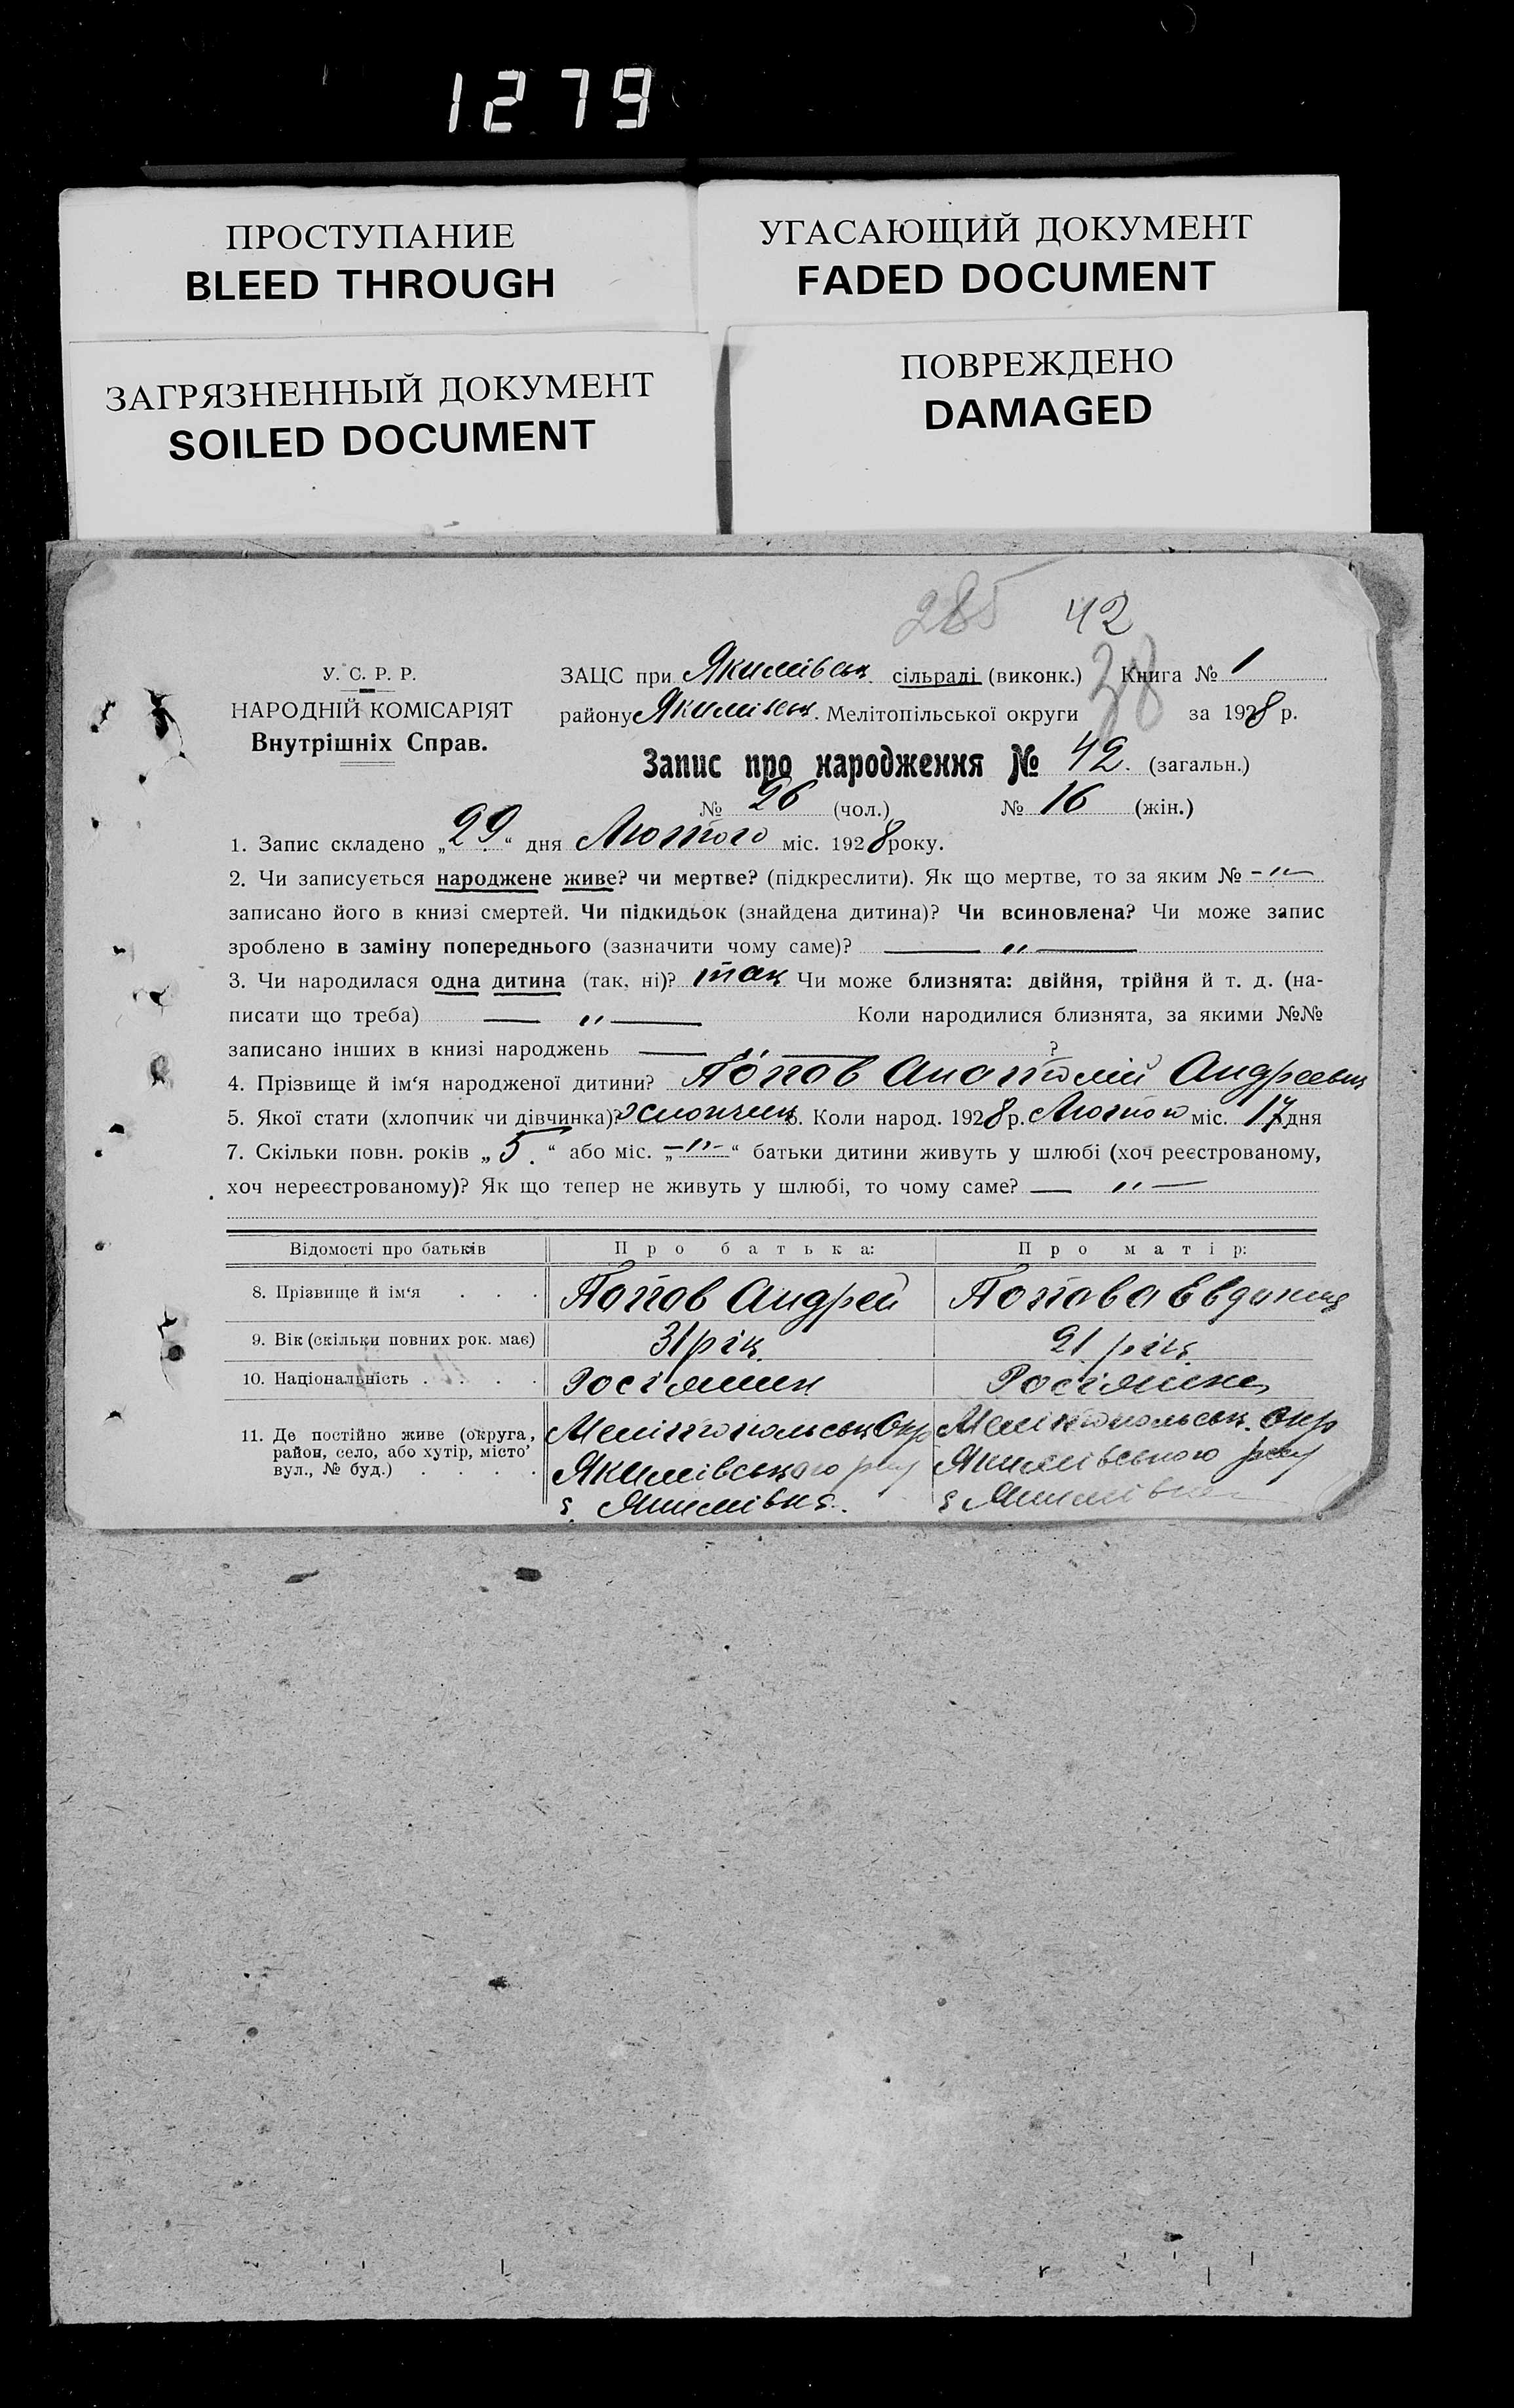 1279
ПРОСТУПАНИЕ
BLEED THROUGH
УГАСАЮЩИЙ ДОКУМЕНТ
FADED DOCUMENT
ЗАГРЯЗНЕННЫЙ ДОКУМЕНТ
SOILED DOCUMENT
ПОВРЕЖДЕНО
DAMAGED
285 42
28
У. С. Р. Р.
НАРОДНІЙ КОМІСАРІЯТ
Внутрішніх Справ.
ЗАЦС при Якимівськ. сільраді (виконк.) Книга № 1
району Якимівськ. Мелітопільської округи за 1928 р.
Запис про народження № 42. (загальн.)
№ 26 (чол.) № 16 (жін.)
1. Запис складено „29.“ дня Лютого міс. 1928 року.
2. Чи записується народжене живе? чи мертве? (підкреслити). Як що мертве, то за яким № -"-
записано його в книзі смертей. Чи підкидьок (знайдена дитина)? Чи всиновлена? Чи може запис
зроблено в заміну попереднього (зазначити чому саме)? — " —
3. Чи народилася одна дитина (так, ні)? так Чи може близнята: двійня, трійня й т. д. (на-
писати що треба) — " — Коли народилися близнята, за якими №№
записано інших в книзі народжень — " — ?
4. Прізвище й ім‘я народженої дитини? Попов Анатолій Андреевич
5. Якої стати (хлопчик чи дівчинка)? хлопчик 6. Коли народ. 1928 р. Лютого міс. 17 дня
7. Скільки повн. років „5.“ або міс. „-"-“ батьки дитини живуть у шлюбі (хоч реєстрованому,
хоч нереєстрованому)? Як що тепер не живуть у шлюбі, то чому саме? — " —
Відомості про батьків Про батька: Про матір:
8. Прізвище й ім‘я . . . Попов Андрей Попова Евдокия
9. Вік (скільки повних рок. має) 31 рік. 21 рік.
10. Національність . . . . Росіянин Росіянка
11. Де постійно живе (округа, район, село, або хутір, місто’ вул., № буд.) . . . .
Мелітопольськ Окр Мелітопольськ. Окр
Якимівського рай Якимівського рай
с. Якимівка. с Якимівка